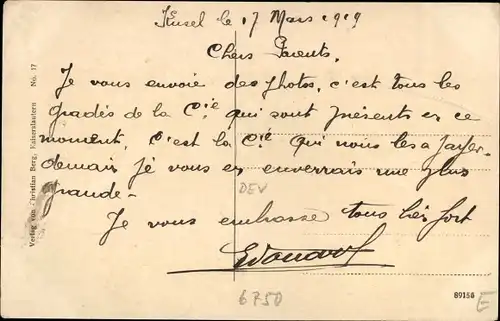 Kusel le 17 Mars 1919
Chers Parents,
Je vous envoie des photos, c'est tous les
gradés de la Cie qui sont présents en ce
moment, C'est la Cie qui nous les a payer.
demain je vous en enverrais une plus
grande-
Je vous embrasse tous bien fort
Edouard
DEV
6750
89156
E
Verlag von Christian Berg, Kaiserslautern No. 17